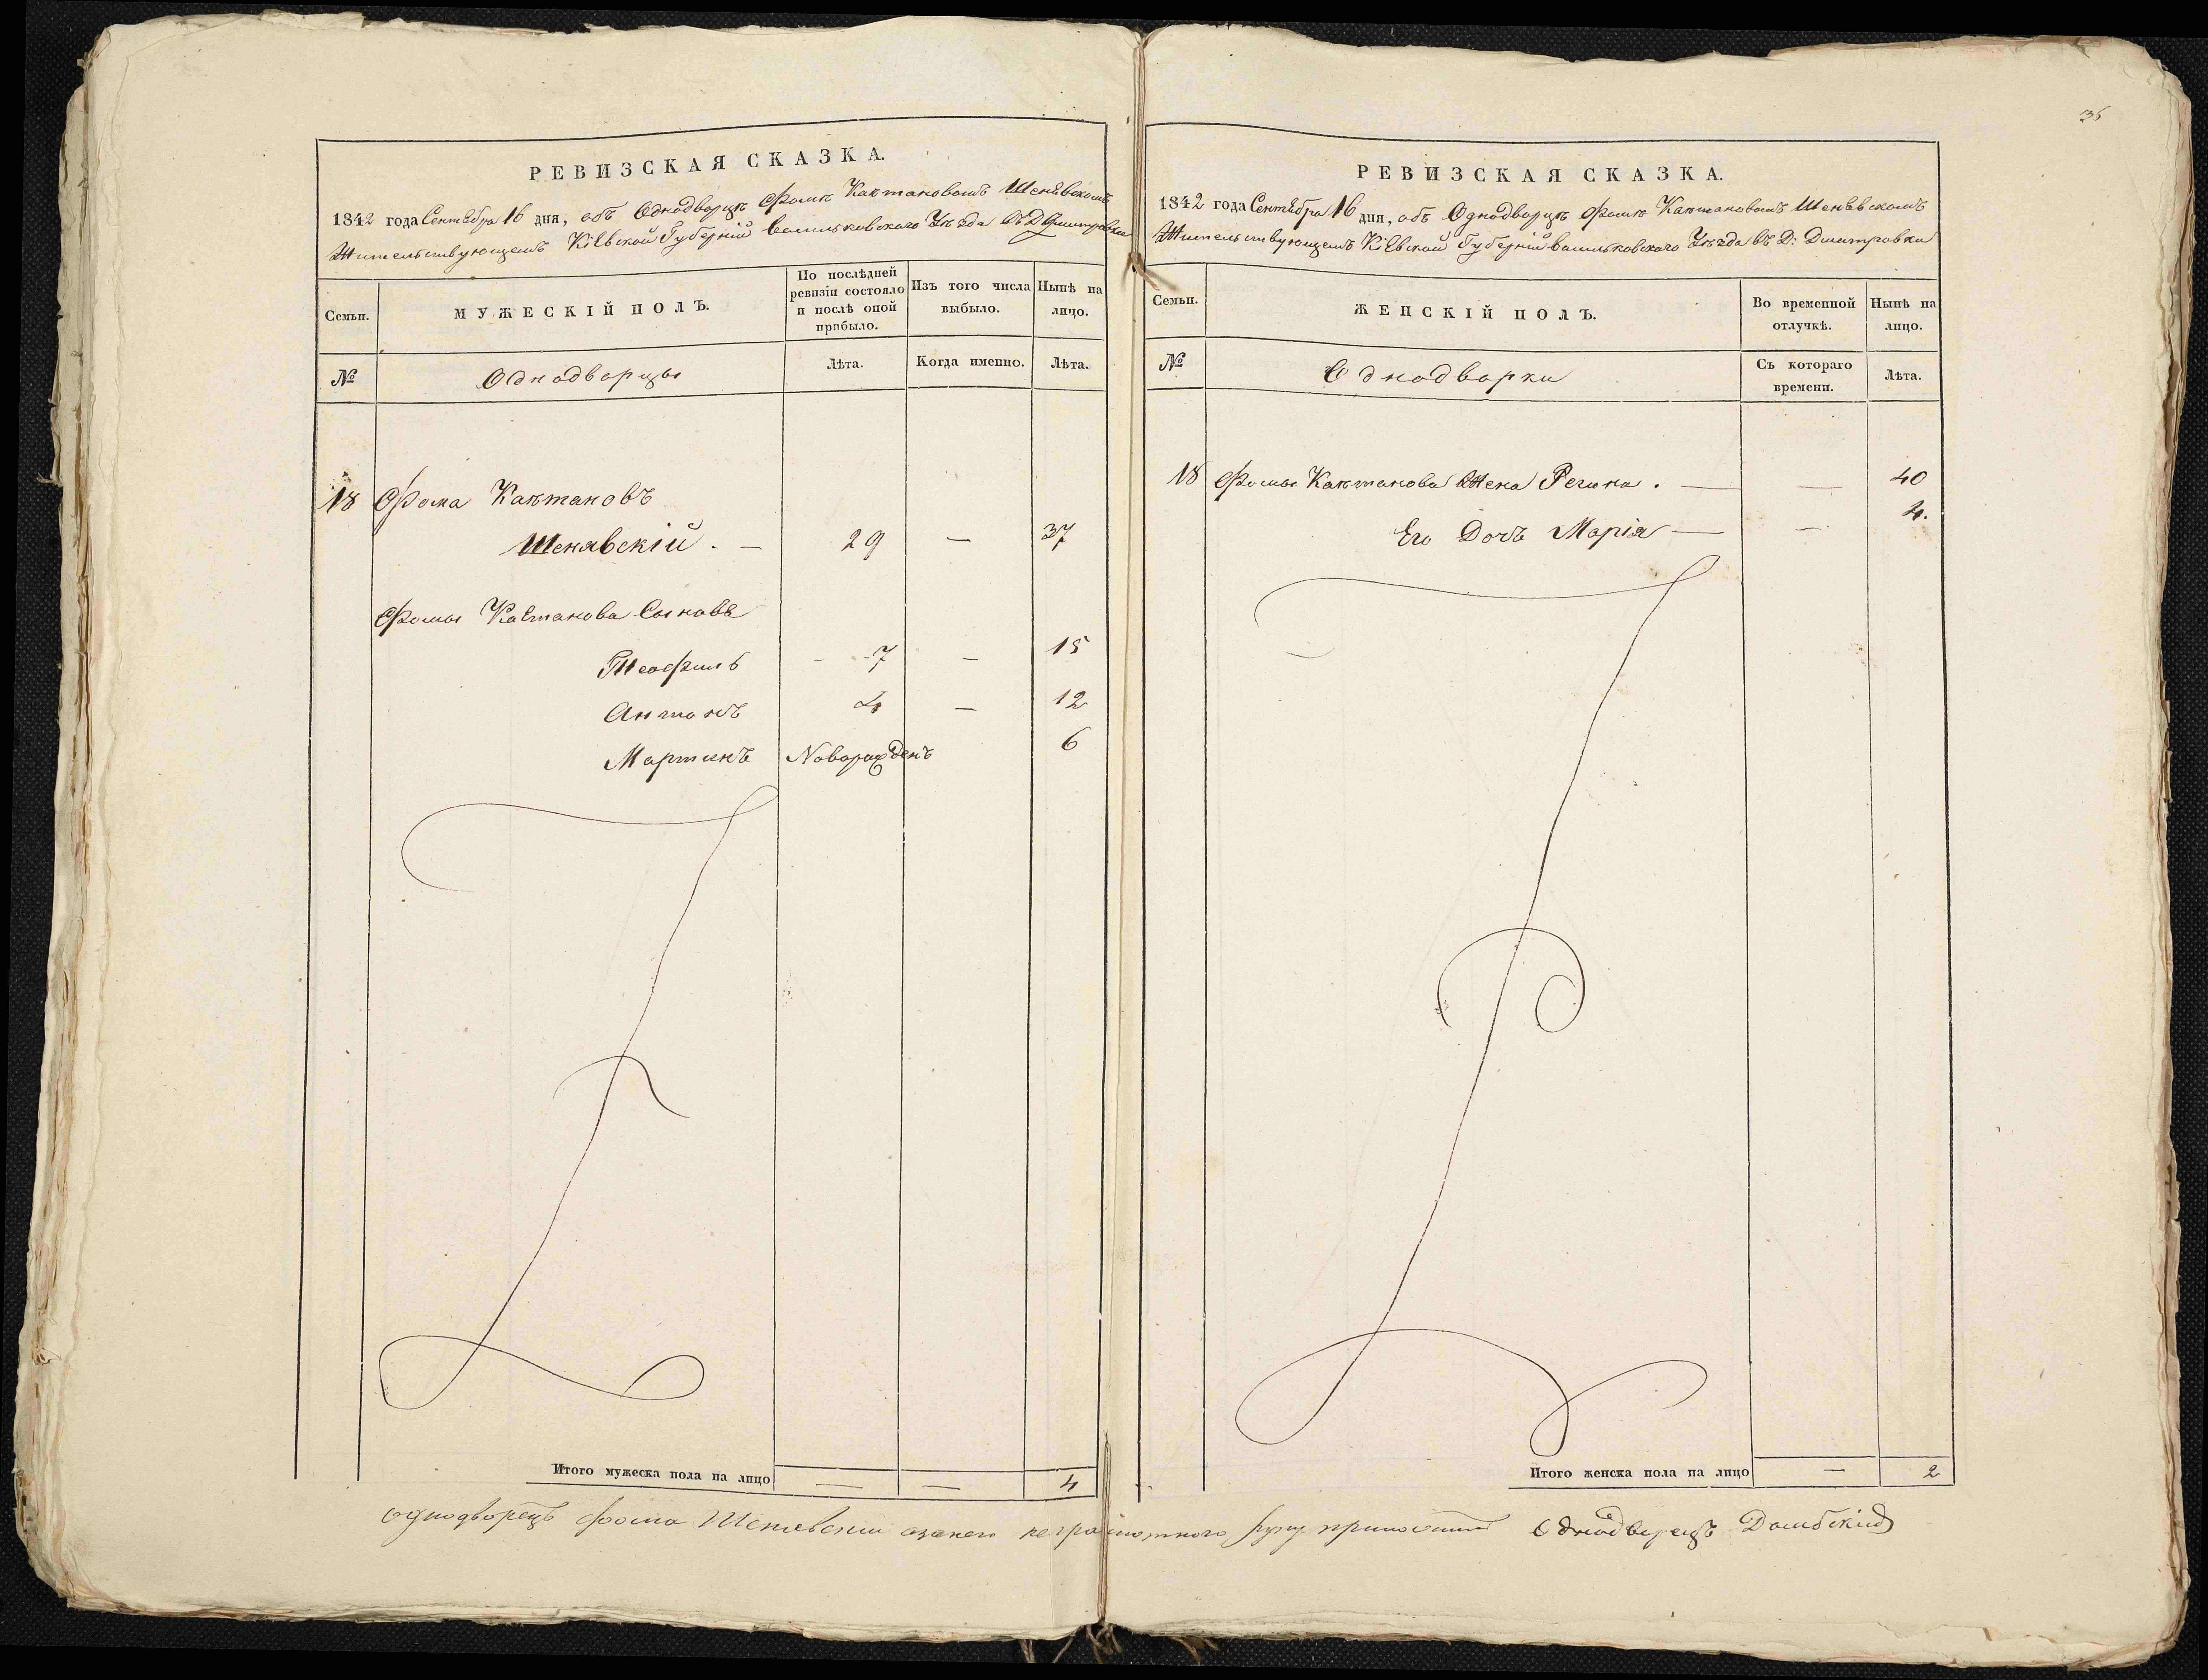 РЕВИЗСКАЯ СКАЗКА.
1842 года Сентября 16 дня, объ Однодворцѣ Фомѣ Каэтановомъ Шенявскомъ
Жительствующемъ Кіевской Губерніи Васильковского Уѣзда Въ Д. Дмитровки
Семьи. МУЖЕСКІЙ ПОЛЪ. По послѣдней ревизіи состояло и послѣ оной прибыло. Изъ того числа выбыло. Нынѣ на лицо.
№ Однодворцы Лѣта. Когда именно. Лѣта.
18 Фома Каэтановъ
Шенявскій. — 29 — 37
Фомы Каэтанова Сыновѣ
Теофиль - 7 — 15
Антонъ 4 — 12
Мартинъ Новорожденъ 6
Итого мужеска пола на лицо — — 4
36
РЕВИЗСКАЯ СКАЗКА.
1842 года Сентября 16 дня, объ Однодворцѣ Фомѣ Каэтановомъ Шенявскомъ
Жительствующемъ Кіевской Губерніи Васильковского Уѣзда въ Д: Дмитровки
Семьи. ЖЕНСКІЙ ПОЛЪ. Во временной отлучкѣ. Нынѣ на лицо.
№ Однодворки Съ котораго времени. Лѣта.
18 Фомы Каэтанова Жена Регина. — — 40
Его Дочъ Марія — — 4.
Итого женска пола на лицо — 2
однодворецъ Фома Шенявский неграмотного руку приложилъ Однодворецъ Домбскій